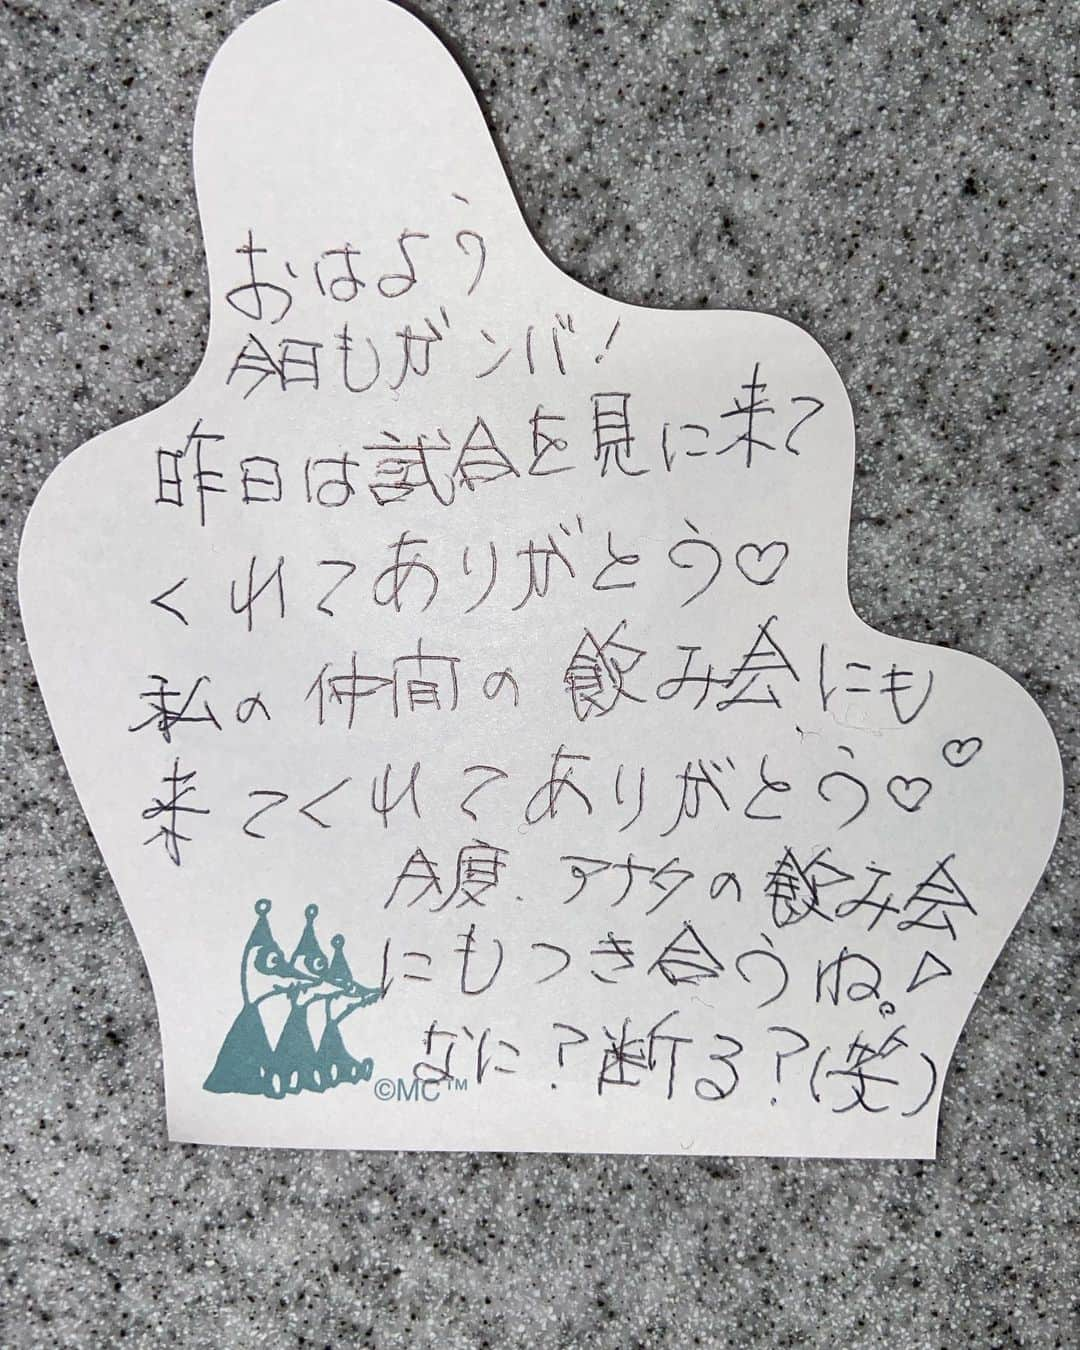 おはよう
今日もガンバ!
昨日は試合を見に来て
くれてありがとう♡
私の仲間の飲み会にも
来てくれてありがとう♡♡
今度、アナタの飲み会
にもつき合うね。
なに?断る?(笑)
©MC™